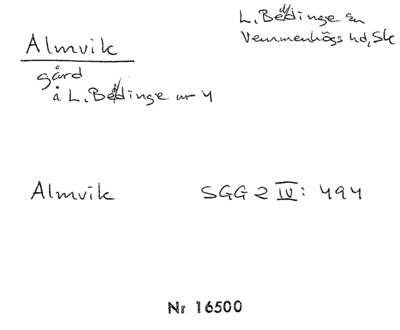 L. Beddinge sn
Vemmenhögs hd, Sk
Almvik
gård
å L. Beddinge nr 4
Almvik SGG 2 IV: 494
Nr 16500